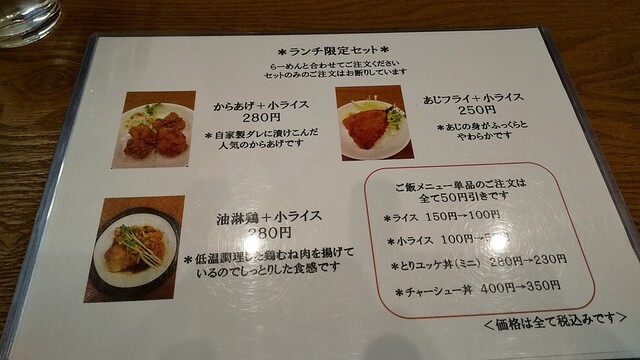 ＊ランチ限定セット＊
らーめんと合わせてご注文ください
セットのみのご注文はお断りしています
からあげ＋小ライス
280円
＊自家製ダレに漬けこんだ
人気のからあげです
あじフライ＋小ライス
250円
＊あじの身がふっくらと
やわらかです
油淋鶏＋小ライス
280円
＊低温調理した鶏むね肉を揚げて
いるのでしっとりした食感です
ご飯メニュー単品のご注文は
全て50円引きです
＊ライス 150円→100円
＊小ライス 100円→
＊とりユッケ丼(ミニ) 280円→230円
＊チャーシュー丼 400円→350円
＜価格は全て税込みです＞